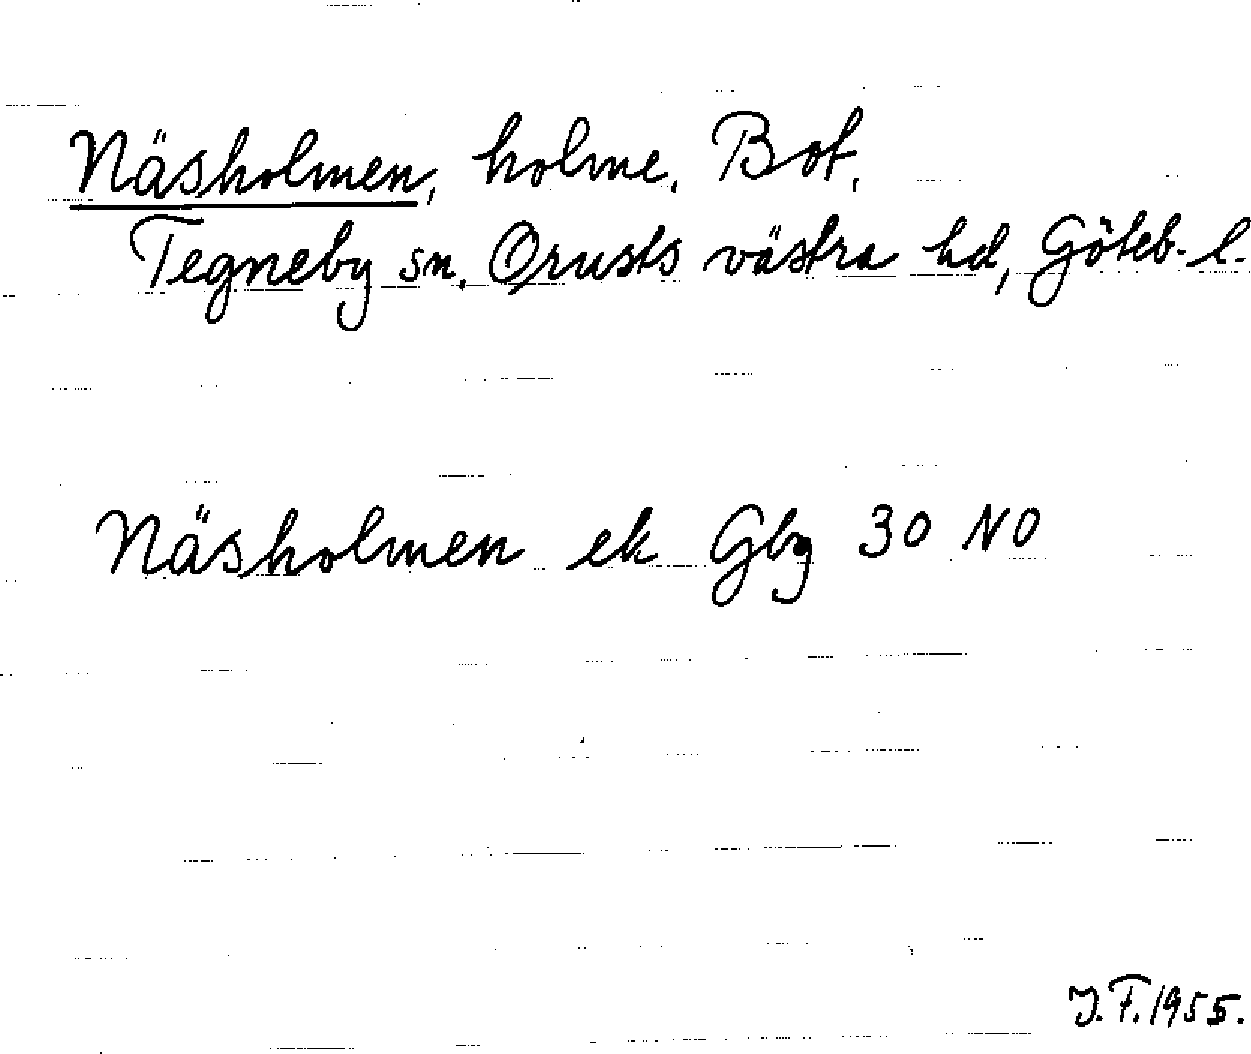 Näsholmen, holme, Bot,
Tegneby sn, Orusts västra hd, Göteb. l.
Näsholmen ek Gbg 30 NO
J.F. 1955.